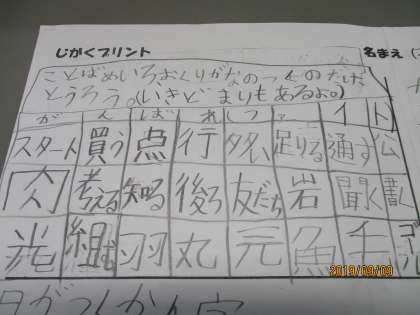 じかくプリント 名まえ
ことばめいろ、おくりがなのつくのだけ
とうろう。(いきどまりもあるよ。)
が ん ば れ し つ ァ イ ト
スタート 買う 点 行 多い 足りる 通す 公
内 考える 知る 後ろ 友だち 岩 聞く 書く
光 組む 羽 丸 元 魚 千 ゴ
2019/09/09